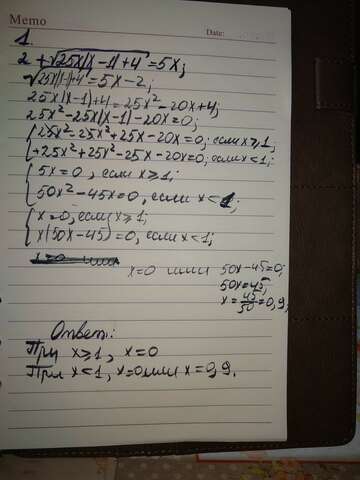 Memo
Date:
1.
2 + √25x|x-1|+4 = 5x;
√25x|x-1|+4 = 5x-2;
25x|x-1|+4 = 25x²-20x+4;
25x²-25x|x-1|-20x=0;
{25x²-25x²+25x-20x=0; если x≥1;
{+25x²+25x²-25x-20x=0; если x<1;
{5x=0, если x≥1;
{50x²-45x=0, если x<1;
{x=0, если x≥1;
{x(50x-45)=0, если x<1;
x=0 или 50x-45=0;
50x=45;
x=45/50=0,9;
Ответ:
При x≥1, x=0
При x<1, x=0 или x=0,9.